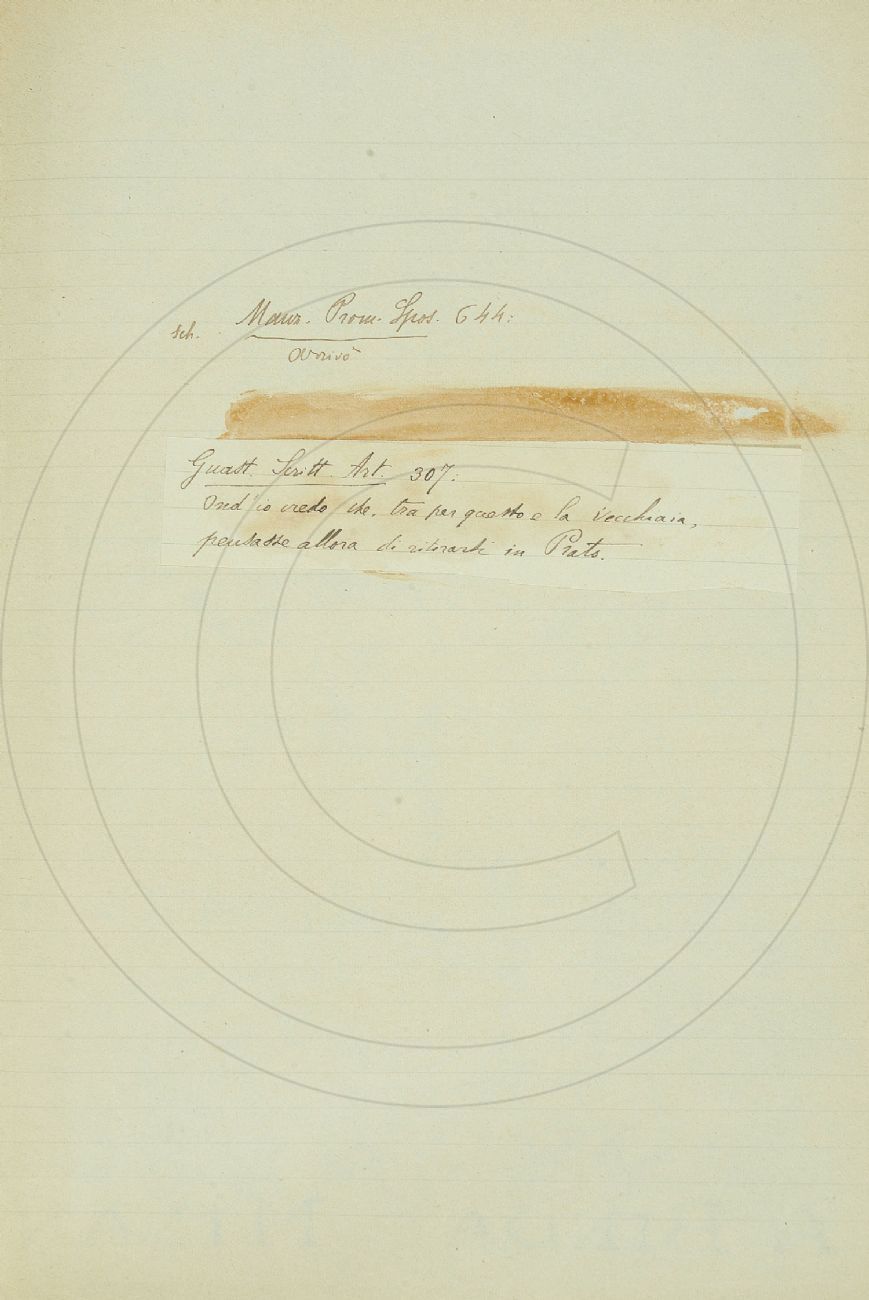 sch. Manz. Prom. Spos. 644:
Arrivò
Guast. Scritt. Art. 307:
Ond'io credo che, tra per questo e la vecchiaia,
pensasse allora di ritirarsi in Prato.